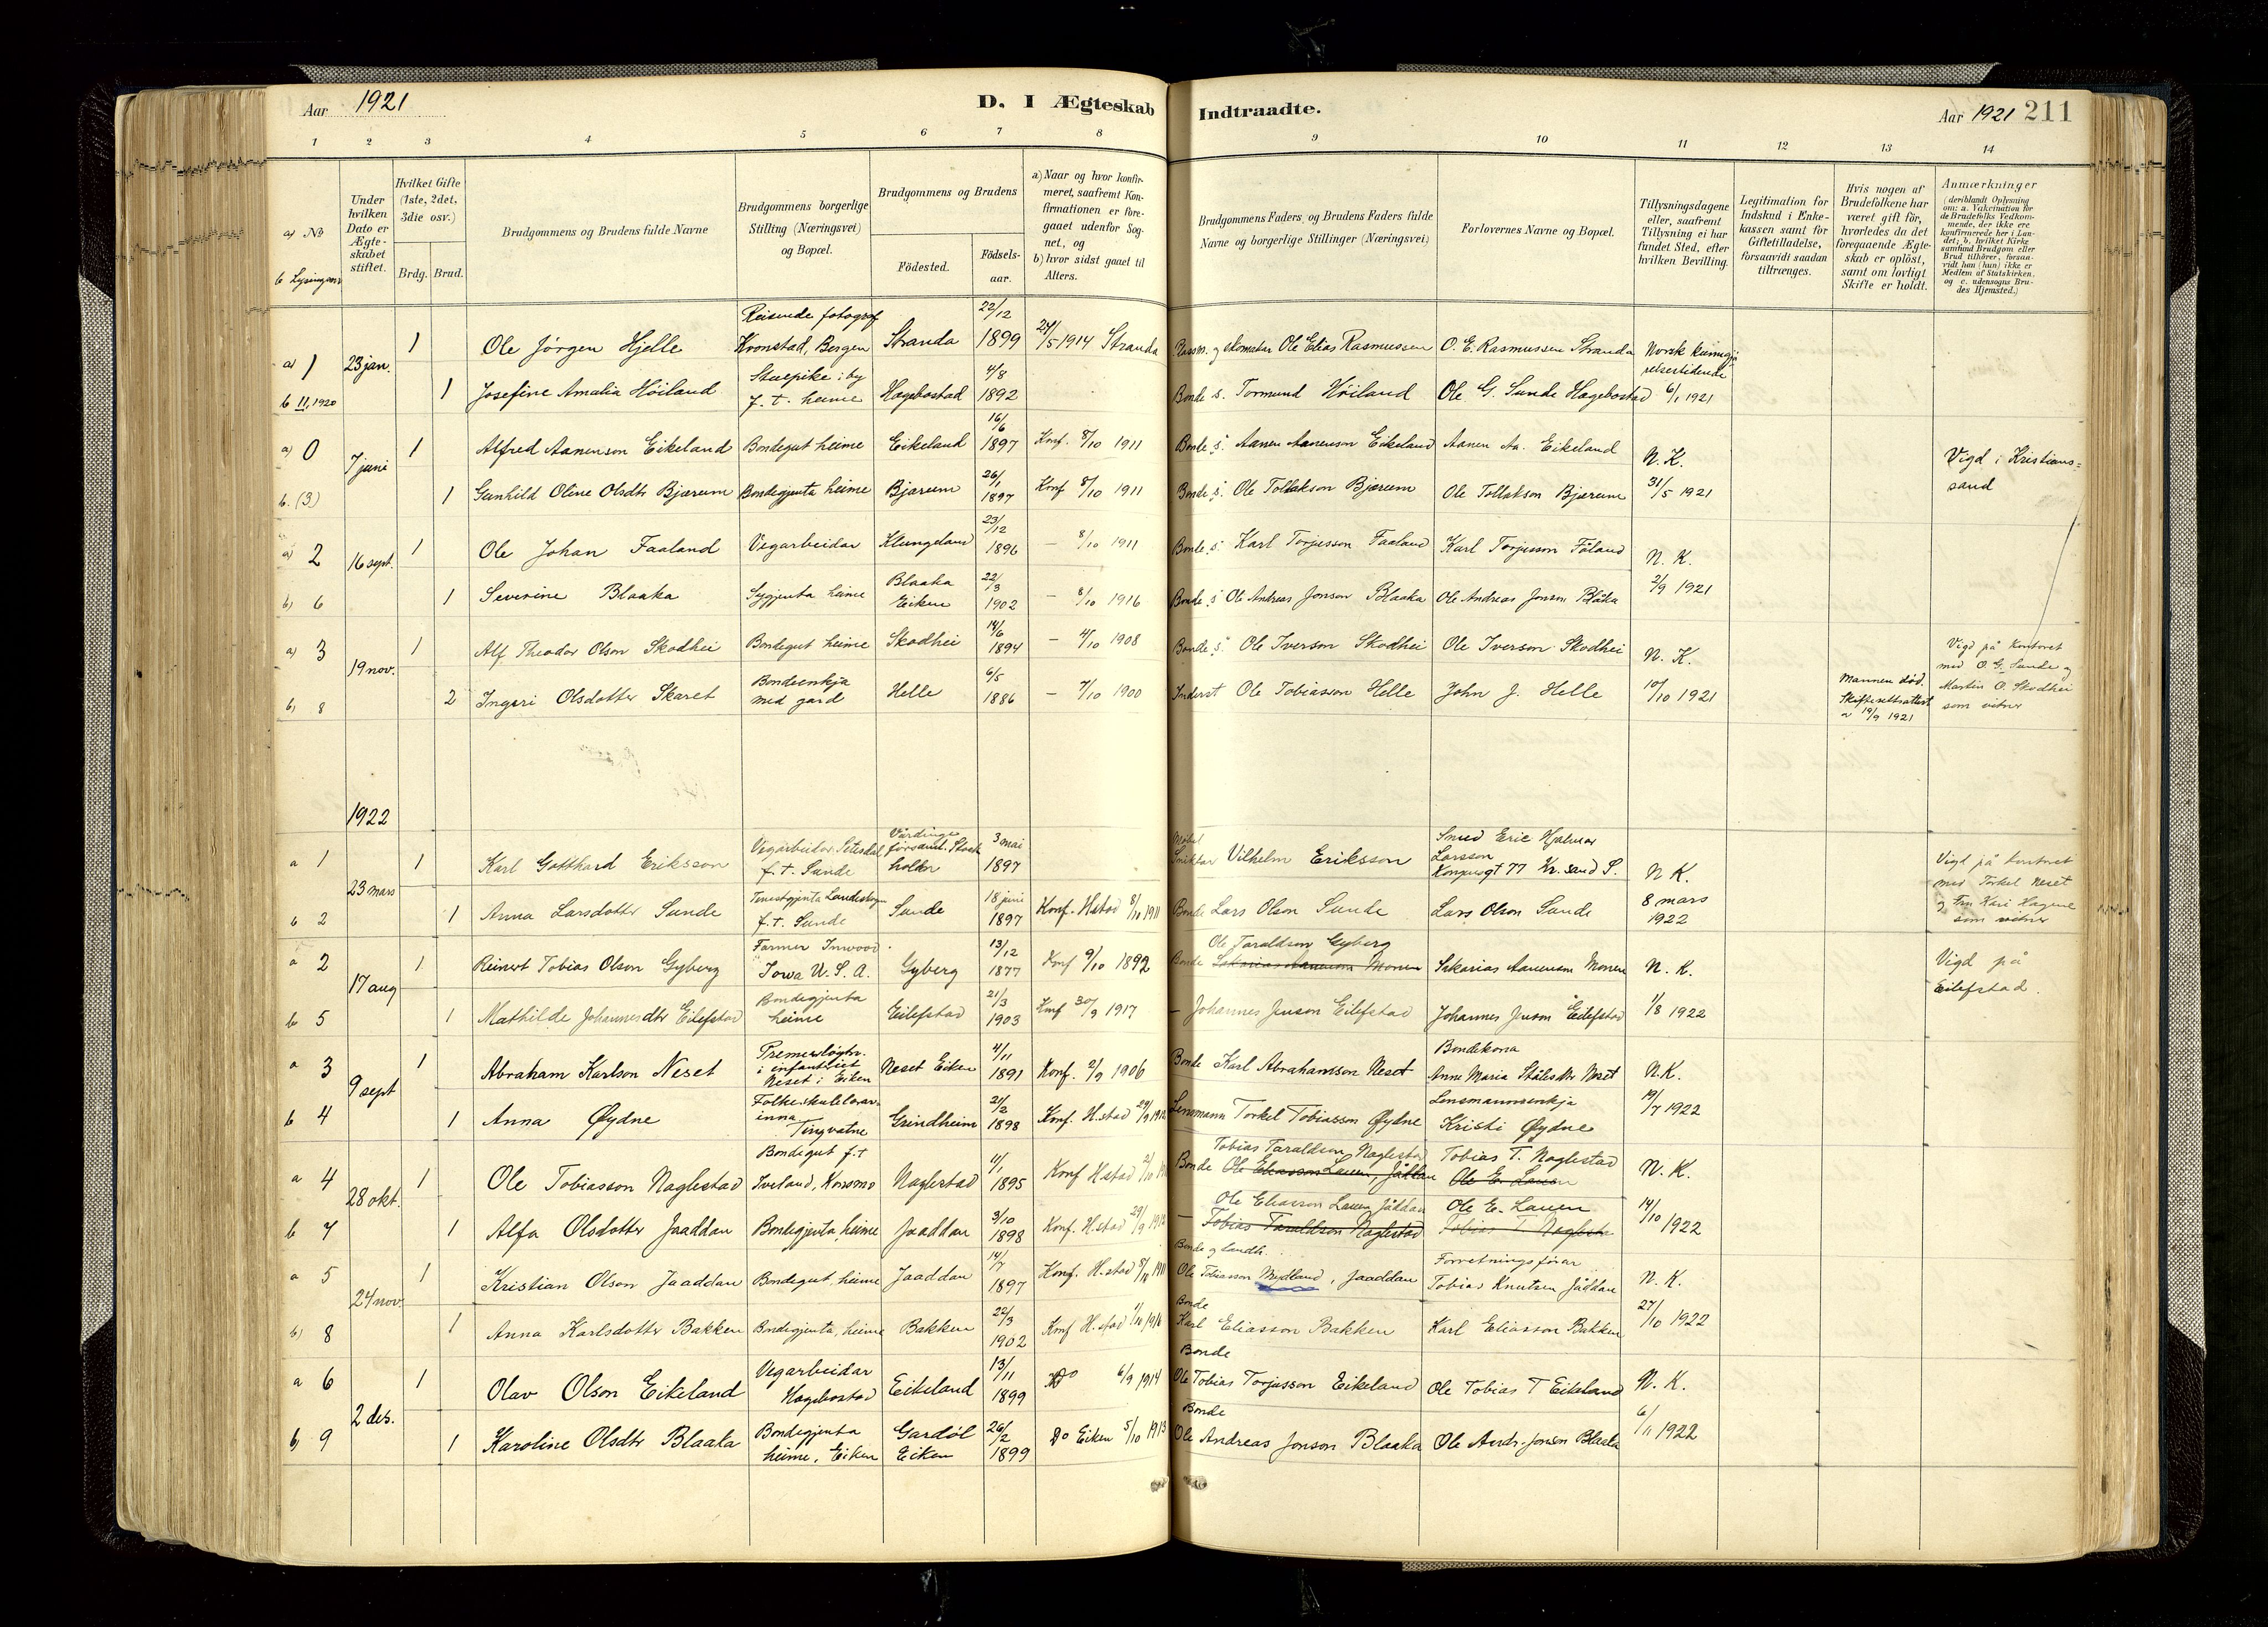 Aar 1921
D. I Ægteskab Indtraadte.
Aar 1921 211
1 2 3 4 5 6 7 8 9 10 11 12 13 14
a) No
b Lysingsno
Under hvilken Dato er Ægteskabet stiftet.
Hvilket Gifte (1ste, 2det, 3die osv.)
Brdg. Brud.
Brudgommens og Brudens fulde Navne
Brudgommens borgerlige Stilling (Næringsvei) og Bopæl.
Brudgommens og Brudens
Födested.
Födsels-aar.
a) Naar og hvor konfirmeret, saafremt Konfirmationen er foregaaet udenfor Sognet, og
b) hvor sidst gaaet til Alters.
Brudgommens Faders og Brudens Faders fulde Navne og borgerlige Stillinger (Næringsvei)
Forlovernes Navne og Bopæl.
Tillysningsdagene eller, saafremt Tillysning ei har fundet Sted, efter hvilken Bevilling.
Legitimation for Indskud i Enkekassen samt for Giftetilladelse, forsaavidt saadan tiltrænges.
Hvis nogen af Brudefolkene har været gift för, hvorledes da det foregaaende Ægteskab er oplöst, samt om lovligt Skifte er holdt.
Anmærkninger (deriblandt Oplysning om: a. Vakcination for de Brudefolks Vedkommende, der ikke ere konfirmerede her i Landet; b. hvilket Kirkesamfund Brudgom eller Brud tilhörer, forsaavidt han (hun) ikke er Medlem af Statskirken, og c. udensogns Brudes Hjemsted.)
a) 1 23 jan. 1 Ole Jörgen Hjelle Reisende fotograf Kronstad, Bergen Stranda 22/12 1899 24/5 1914 Stranda Ole Elias Rasmussen O. E. Rasmussen Stranda Norsk kunngjørelsestidende
b 11, 1920 1 Josefine Amalia Höiland Stuepike i by f. t. heime Hægebostad 4/8 1892 Bonde s. Tormund Höiland Ole G. Sunde Hægebostad 6/1 1921
a) 0 7 juni 1 Alfred Aanenson Eikeland Bondegut heime Eikeland 16/6 1897 Konf. 8/10 1911 Bonde s. Aanen Aanenson Eikeland Aanen Aa. Eikeland N. K. Vigd i Kristianssand
b. (3) 1 Gunhild Oline Olsdtr Bjærum Bondegjenta heime Bjærum 26/1 1897 Konf 8/10 1911 Bonde s. Ole Tollakson Bjærum Ole Tollakson Bjærum 31/5 1921
a) 2 16 sept. 1 Ole Johan Faaland Vegarbeidar Klungeland 23/12 1896 — 8/10 1911 Bonde s. Karl Torjusson Faaland Karl Torjusson Fåland N. K.
b) 6 1 Severine Blaaka Sygjenta heime Blaaka Eiken 22/3 1902 — 8/10 1916 Bonde s. Ole Andreas Jonson Blaaka Ole Andreas Jonson Blåka 2/9 1921
a) 3 19 nov. 1 Alf Theodor Olson Skodhei Bondegut heime Skodhei 14/6 1894 — 4/10 1908 Bonde s. Ole Iverson Skodhei Ole Iverson Skodhei N. K. Vigd på kontoret med O. G. Sunde og Martin O. Skodhei som vitner
b) 8 2 Ingeri Olsdotter Skaret Bondeenkja med gard Helle 6/5 1886 — 7/10 1900 Inderst Ole Tobiasson Helle John J. Helle 10/10 1921 Mannen död. Skifterettsattest a 19/9 1921
1922
a 1 23 mars 1 Karl Gotthard Eriksson Vegarbeidar Setesdal f. t. Sunde Vårdinge församl. Stockholm 3 mai 1897 Vilhelm Eriksson Smed Eric Hjalmar Larsson Kongensgt 77 Kr. sand S. N K. Vigd på kontoret med Torkel Neset og Fru Kari Hagene som vitner
b 2 1 Anna Larsdotter Sunde Tenestgjenta Landeskogn f. t. Sunde Sunde 18 juni 1897 Konf. H.stad 8/10 1911 Bonde Lars Olson Sunde Lars Olson Sunde 8 mars 1922
a 2 17 aug 1 Reinert Tobias Olson Gyberg Farmer Inwood Iowa U. S. A. Gyberg 13/12 1877 Konf 9/10 1892 Bonde Ole Taraldson Gyberg Sakarias Aanenson Monen Sakarias Aanenson Monen N. K. Vigd på Eilefstad.
b 5 1 Mathilde Johannesdtr Eilefstad Bondegjenta heime Eilefstad 21/3 1903 Konf 30/9 1917 — Johannes Jenson Eilefstad Johannes Jenson Eilefstad 1/8 1922
a 3 9 sept 1 Abraham Karlson Neset Premierløytn. i infanteriet Neset i Eiken Neset Eiken 4/11 1891 Konf. 2/9 1906 Bonde Karl Abrahamson Neset Bondekona Anne Maria Stålesdtr Neset N.K.
b 4 1 Anna Øydne Folkeskulelærarinna Tingvatne Grindheim 21/2 1898 Konf. H.stad 29/9 1912 Lensmann Torkel Tobiasson Øydne Lensmannsenkja Kristi Øydne 19/7 1922
a 4 28 okt. 1 Ole Tobiasson Naglestad Bondegut f.t Iveland, Konsmo Naglestad 4/1 1895 Konf H.stad Bonde Tobias Taraldson Naglestad Ole Eliasson Lauen, Jåddan Tobias T. Naglestad Ole E. Lauen N. K.
b 7 1 Alfa Olsdotter Jaaddan Bondegjenta, heime Jaaddan 3/10 1898 Konf. H.stad 29/9 1912 — Ole Eliasson Lauen Jåddan Tobias Taraldson Naglestad Ole E. Lauen Tobias T. Naglestad 14/10 1922
a 5 24 nov. 1 Kristian Olson Jaaddan Bondegut, heime Jaaddan 14/7 1897 Konf. H.stad 8/10 1911 Bonde og landh. Ole Tobiasson Mydland, Jaaddan Forretningsförar Tobias Knutsen Jåddan N. K.
b) 8 1 Anna Karlsdotter Bakken Bondegjenta, heime Bakken 22/3 1902 Konf H.stad 1/10 1916 Bonde Karl Eliasson Bakken Karl Eliasson Bakken 27/10 1922
a 6 2 des. 1 Olav Olson Eikeland Vegarbeidar Hægebostad Eikeland 13/11 1899 Do 6/9 1914 Bonde Ole Tobias Torjusson Eikeland Ole Tobias T Eikeland N. K.
b) 9 1 Karoline Olsdtr Blaaka Bondegjenta heime, Eiken Gardöl Eiken 26/2 1899 Do Eiken 5/10 1913 Bonde Ole Andreas Jonson Blaaka Ole Andr. Jonson Blaaka 6/11 1922